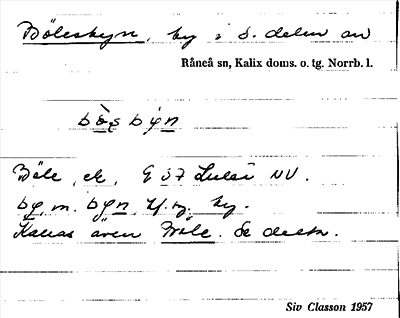 Bölesbyn, by i s. delen av
Råneå sn, Kalix doms. o. tg. Norrb. l.
bò̤sby̍n
Böle, ek. G 37 Luleå NV.
by, m. byn, if. sg. by.
Kallas även Böle. Se detta.
Siv Classon 1957